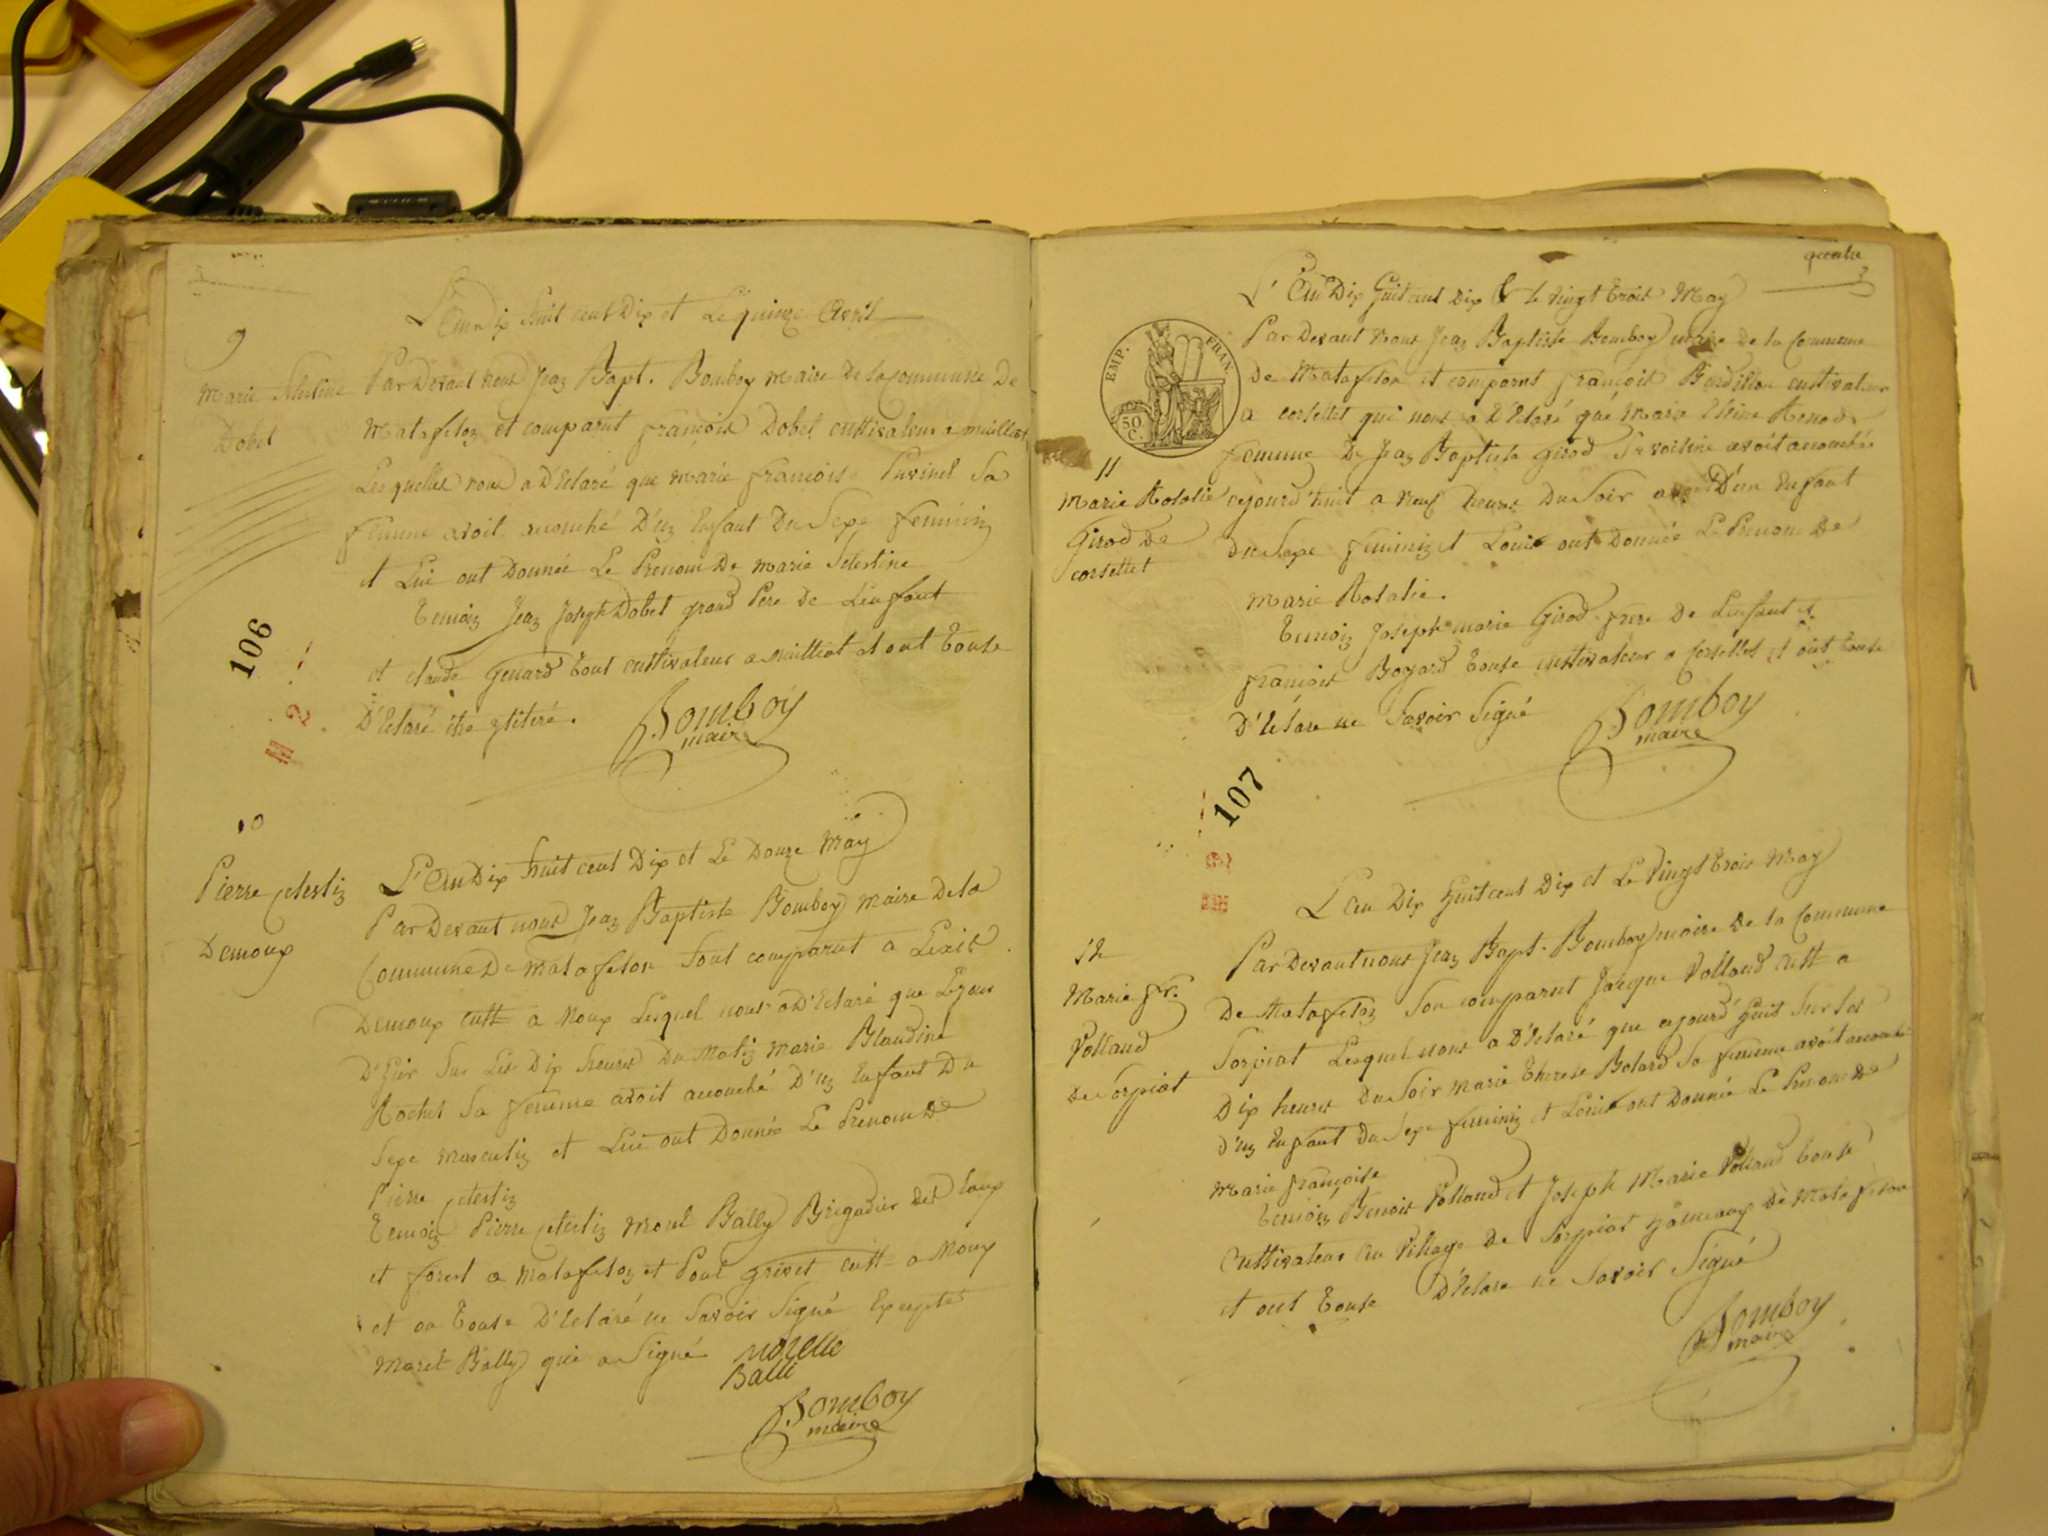 9
L'an dix huit cent Dix et Le quinze Avril
Marie Selestine
Dobel
Par Devant nous Jean Bapt. Bomboy maire De la Commune De
Matafelon et comparut françois Dobel cultivateur a
Lesquelles nous a D'Eclaré que marie françoise sa
femme avoit acouché D'un Enfant Du Sexe feminin
et Lui ont Donnée Le Prenom De marie Selestine
Temoin Jean Joseph Dobel grand Pere De L'enfant
et claude Genard tout cultivateur a et ont touse
D'Eclaré être
Bomboy
maire
106
2
10
Pierre celestin
Demoux
L'an Dix huit cent Dix et Le Douze May
Par Devant nous Jean Baptiste Bomboy maire De la
Commune De Matafelon Sont comparut a
Demoux cult a Moux Lesquel nous a D'Eclaré que Le jour
D'hier Sur Les Dix heures Du Matin Marie Blandine
Rochet Sa femme avoit acouché D'un Enfant Du
Sexe masculin et Lui ont Donnée Le Prenom De
Pierre celestin
Temoin Pierre celestin Morel Bally Brigadier Des Eaux
et foret a Matafelon et Paul grivet cult a Moux
et on touse D'Eclaré ne Savoir Signé Excepte
Morel Bally qui a Signé
morelle
Balli
Bomboy
maire
quatre
3
L'An Dix huit cent dix & le vingt trois May
EMP. FRAN.
50 C.
Par Devant nous Jean Baptiste Bomboy maire de la Commune
De Matafelon et comparut françois Burdillon cultivateur
a corsellet qui nous a D'Eclaré que Marie Renod
femme De Jean Baptiste Girod Sa voisine avoit acouchée
11
Marie Rosalie
Girod De
corsellet
cejourd'huit a Neuf heures Du Soir D'un Enfant
du Sexe feminin et Louis ont Donnée Le Prenom De
Marie Rosalie.
Temoin Joseph marie Girod frere De L'enfant et
françois Boyard touse cultivateur a Corsellet et ont touse
D'Eclare ne Savoir Signé
Bomboy
maire
107
3
L'an Dix huit cent Dix et Le Vingt trois May
12
Marie fr.
Volland
De Sorpiat
Par Devant nous Jean Bapt. Bomboy maire de la Commune
De Matafelon Son comparut Jacque Volland cult a
Sorpiat Lesquel nous a D'Eclaré que cejourd'huit Sur Les
Dix heures Du Soir Marie Therese Bolard Sa femme avoit acouché
D'un Enfant Du Sexe feminin et Louis ont Donnée Le Prenom De
Marie françoise
Temoin Benoit Volland et Joseph Marie Volland touse
Cultivateur au Village De Sorpiat hameaux De Matafelon
et ont touse D'Eclare ne Savoir Signé
Bomboy
maire